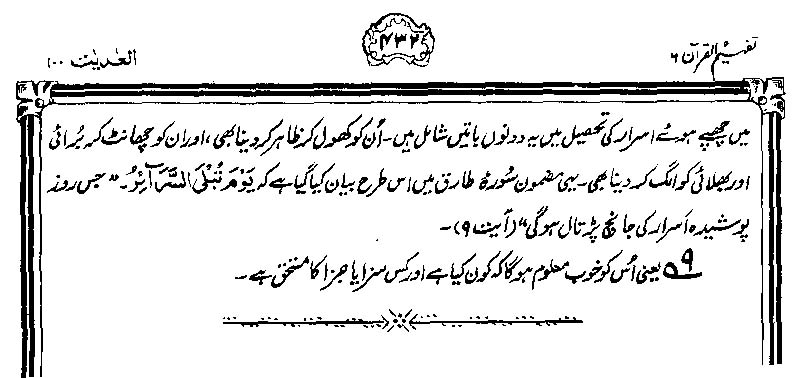 تفہیم القرآن ۶
۴۳۲
العٰدیٰت ۱۰۰
میں چھپے ہوئے اسرار کی تحصیل میں یہ دونوں باتیں شامل ہیں۔ اُن کو کھول کر ظاہر کر دینا بھی، اور ان کو چھانٹ کر برائی
اور بھلائی کو الگ کر دینا بھی۔ یہی مضمون سُورۂ طارق میں اس طرح بیان کیا گیا ہے کہ یَوْمَ تُبْلَی السَّرَآئِرُ۔ "جس روز
پوشیدہ اَسرار کی جانچ پڑتال ہوگی" (آیت ۹)۔
۹ یعنی اُس کو خوب معلوم ہوگا کہ کون کیا ہے اور کس سزا یا جزا کا مستحق ہے۔